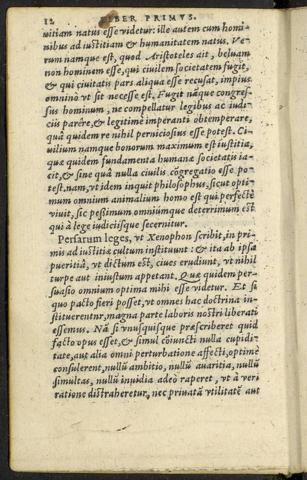 12 LIBER PRIMVS.
uitiam natus esse videtur: ille autem cum homi-
nibus ad iustitiam & humanitatem natus. Ve-
rum namque est, quod Aristoteles ait, beluam
non hominem esse, qui ciuilem societatem fugit,
& qui ciuitatis pars aliqua esse recusat, impius
omnino vt sit necesse est. Fugit nāque congres-
sus hominum, ne compellatur legibus ac iudi-
ciis parēre, & legitimè imperanti obtemperare,
quâ quidem re nihil perniciosius esse potest. Ci-
uilium namque bonorum maximum est iustitia,
quæ quidem fundamenta humanæ societatis ia-
cit, & sine quâ nulla ciuilis cōgregatio esse po-
test. nam, vt idem inquit philosophus, sicut opti-
mum omnium animalium homo est qui perfectè
viuit, sic pessimum omniumque deterrimum est
qui à lege iudiciisque secernitur.
Persarum leges, vt Xenophon scribit, in pri-
mis ad iustitiæ cultum instituunt: & ita ab ipsa
pueritiâ, vt dictum est, ciues erudiunt, vt nihil
turpe aut iniustum appetant. Quæ quidem per-
suasio omnium optima mihi esse videtur. Et si
quo pacto fieri posset, vt omnes hac doctrina in-
stituerentur, magna parte laboris nostri liberati
essemus. Nā si vnusquisque præscriberet quid
facto opus esset, & simul cōiuncti nulla cupidi-
tate, aut alia omni perturbatione affecti, optimè
consulerent, nullū ambitio, nullū auaritia, nullū
simultas, nullū inuidia adeò raperet, vt à veri
ratione distraheretur, nec priuatā vtilitatē aut